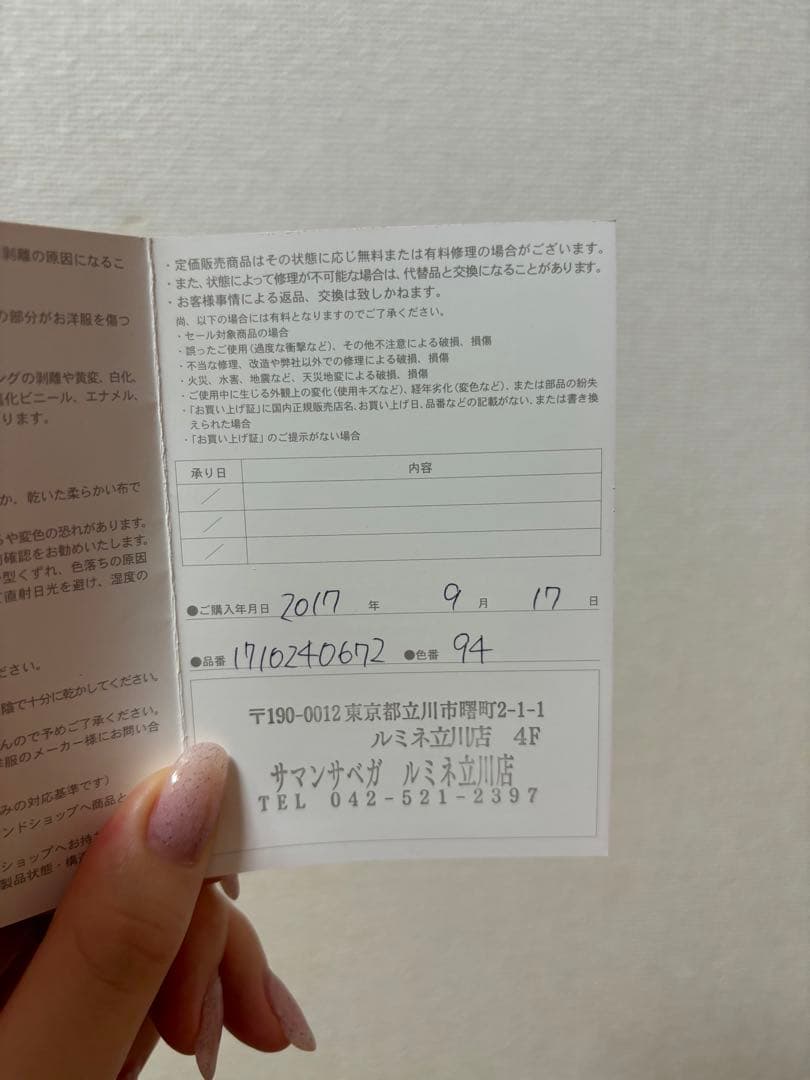 剥離の原因になるこ
の部分がお洋服を傷つ
ングの剥離や黄変、白化、
塩化ビニール、エナメル、
ります。
か、乾いた柔らかい布で
ちや変色の恐れがあります。
前確認をお勧めいたします。
型くずれ、色落ちの原因
直射日光を避け、湿度の
ださい。
陰で十分に乾かしてください。
んので予めご了承ください。
洋服のメーカー様にお問い合
みの対応基準です）
ンドショップへ商品と
ショップへお持
製品状態・構造
・定価販売商品はその状態に応じ無料または有料修理の場合がございます。
・また、状態によって修理が不可能な場合は、代替品と交換になることがあります。
・お客様事情による返品、交換は致しかねます。
尚、以下の場合には有料となりますのでご了承ください。
・セール対象商品の場合
・誤ったご使用（過度な衝撃など）、その他不注意による破損、損傷
・不当な修理、改造や弊社以外での修理による破損、損傷
・火災、水害、地震など、天災地変による破損、損傷
・ご使用中に生じる外観上の変化（使用キズなど）、経年劣化（変色など）、または部品の紛失
・「お買い上げ証」に国内正規販売店名、お買い上げ日、品番などの記載がない、または書き換
えられた場合
・「お買い上げ証」のご提示がない場合
承り日 内容
／
／
／
●ご購入年月日 2017 年 9 月 17 日
●品番 1710240672 ●色番 94
〒190-0012 東京都立川市曙町2-1-1
ルミネ立川店 4F
サマンサベガ ルミネ立川店
TEL 042-521-2397